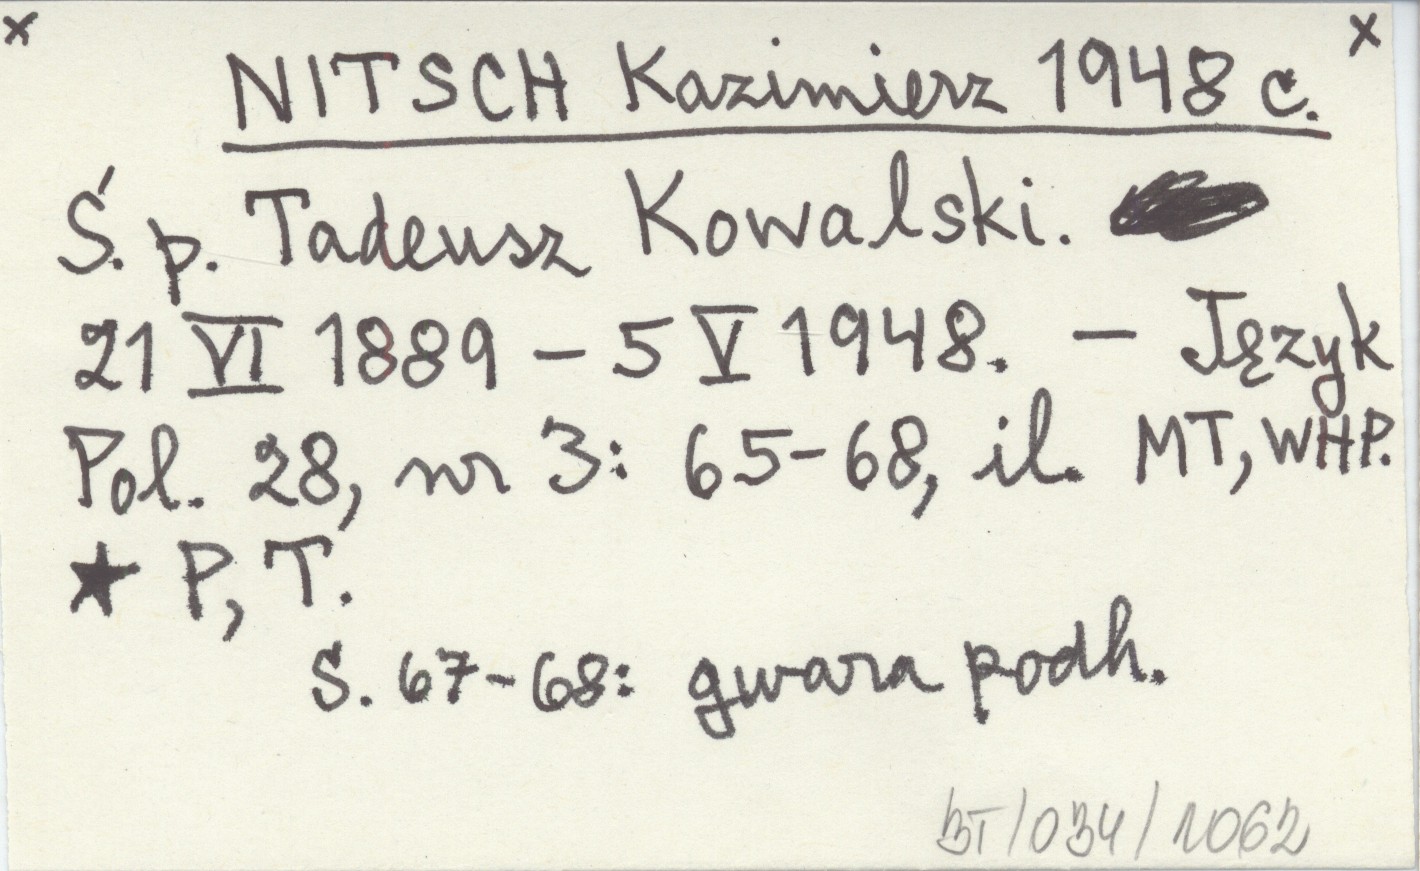 x x
NITSCH Kazimierz 1948 c.
Ś. p. Tadeusz Kowalski.
21 VI 1889 – 5 V 1948. – Język
Pol. 28, nr 3: 65-68, il. MT, WHP.
★ P, T.
S. 67-68: gwara podh.
BT/034/1062